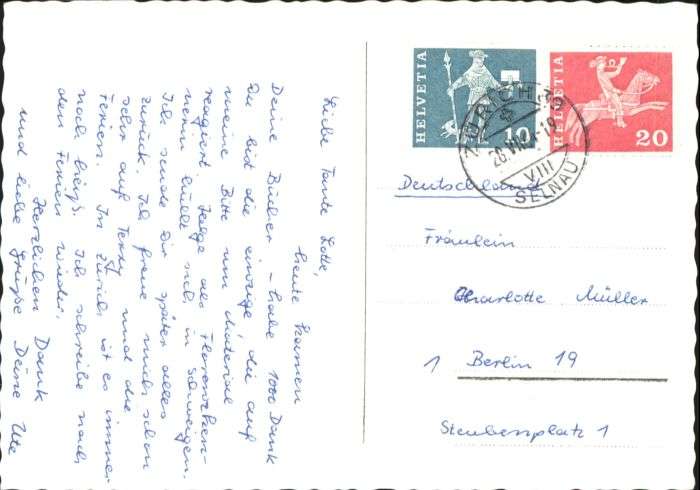 Liebe Tante Lotte,
heute kamen
Deine Bücher – habe 1000 Dank
Du bist die einzige die auf
meine Bitte um Material
reagiert. Helga als Florenzken-
nerin hüllt sich in Schweigen.
Ich sende Dir später alles
zurück. Ich freue mich schon
sehr auf Terry und die
Ferien. In Zürich ist es immer
noch Ich schreibe nach
den Ferien wieder.
Herzlichen Dank
und liebe Grüße Deine Ute
HELVETIA
10
HELVETIA
20
ZÜRICH 39
28.VII.
VIII
SELNAU
Deutschland
Fräulein
Charlotte Müller
1 Berlin 19
Steubenplatz 1